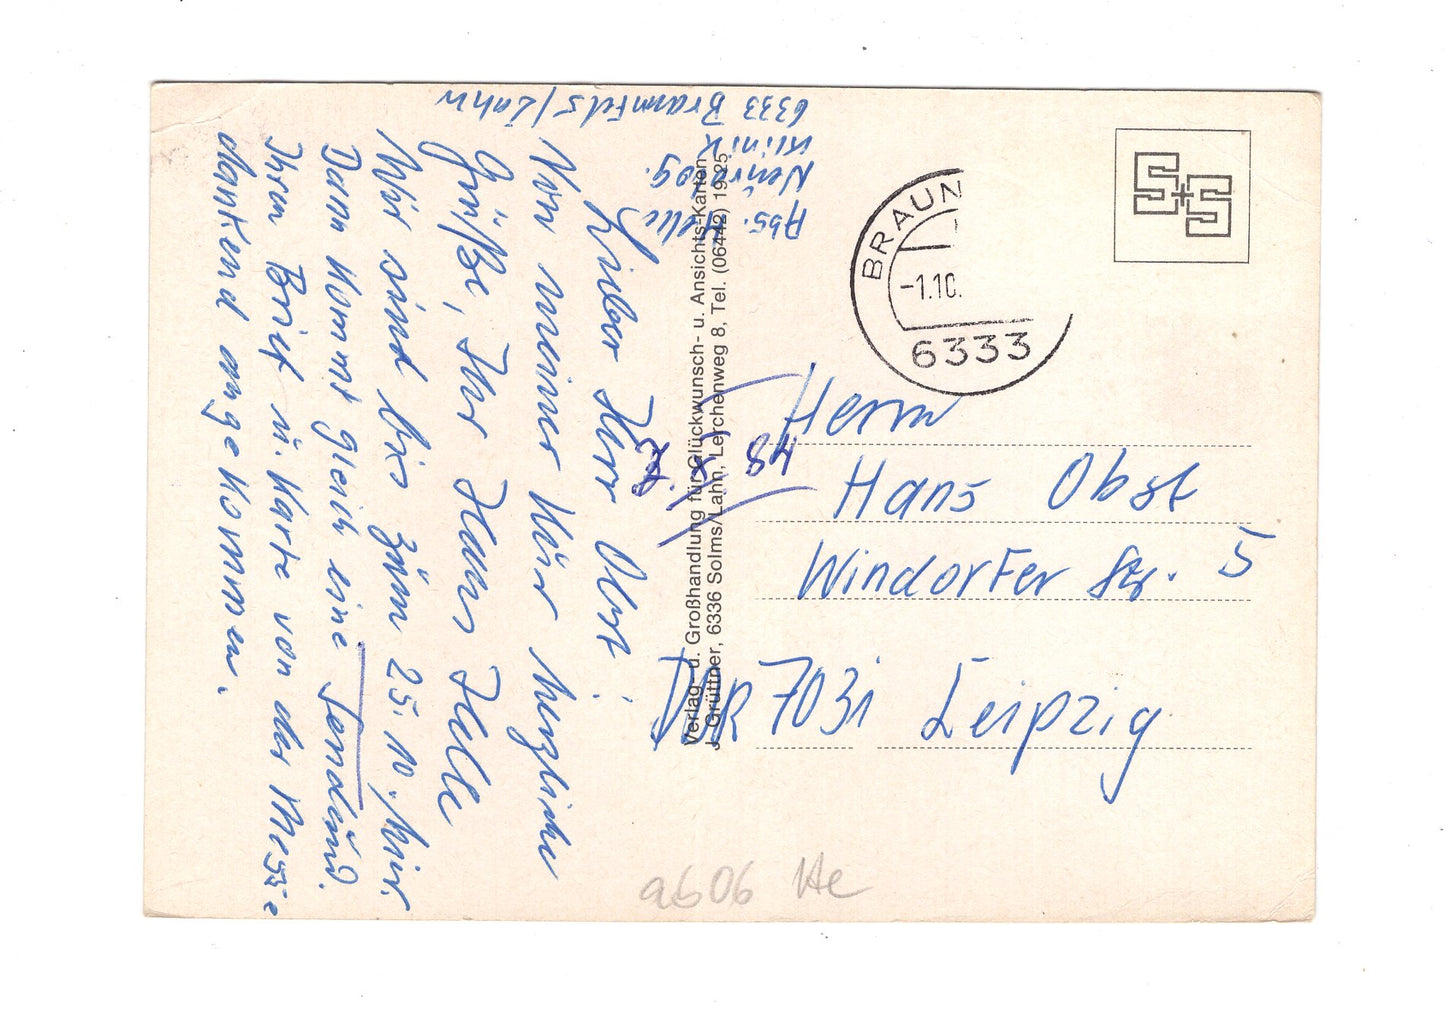 Abs. Helle
Neurolog.
Klinik
6333 Braunfels/Lahn
Lieber Herr Obst!
Von meiner Kur herzliche
Grüße, Ihr Hans Helle
Wir sind bis zum 25.10.
Dann kommt gleich eine Sendung.
Ihren Brief u. Karte von der Messe
dankend angekommen.
Verlag- u. Großhandlung für Glückwunsch- u. Ansichts-Karten
J. Grüttner, 6336 Solms/Lahn, Lerchenweg 8, Tel. (06442) 19 25
S+S
BRAUN
-1.10.
6333
48
Herrn
Hans Obst
Windorfer Str. 5
DDR 7031 Leipzig
a606 He